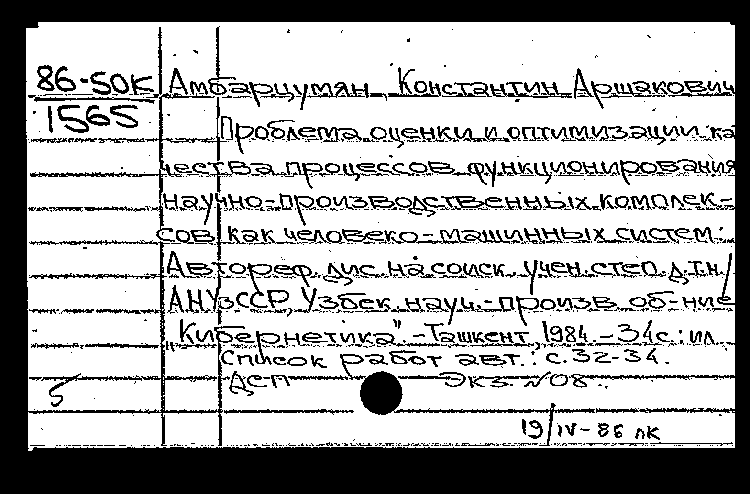 86-50К Амбарцумян, Константин Аршакович
1565
Проблема оценки и оптимизации ка
чества процессов функционирования
научно-производственных комплек-
сов как человеко-машинных систем:
Автореф. дис. на соиск. учен. степ. д.т.н/
АН УзССР, Узбек. науч.-произв. об-ние
"Кибернетика". - Ташкент, 1984. - 34с.: ил.
Список работ авт.: с. 32-34.
5 ДСП Экз. №08.
19/IV-86 лк